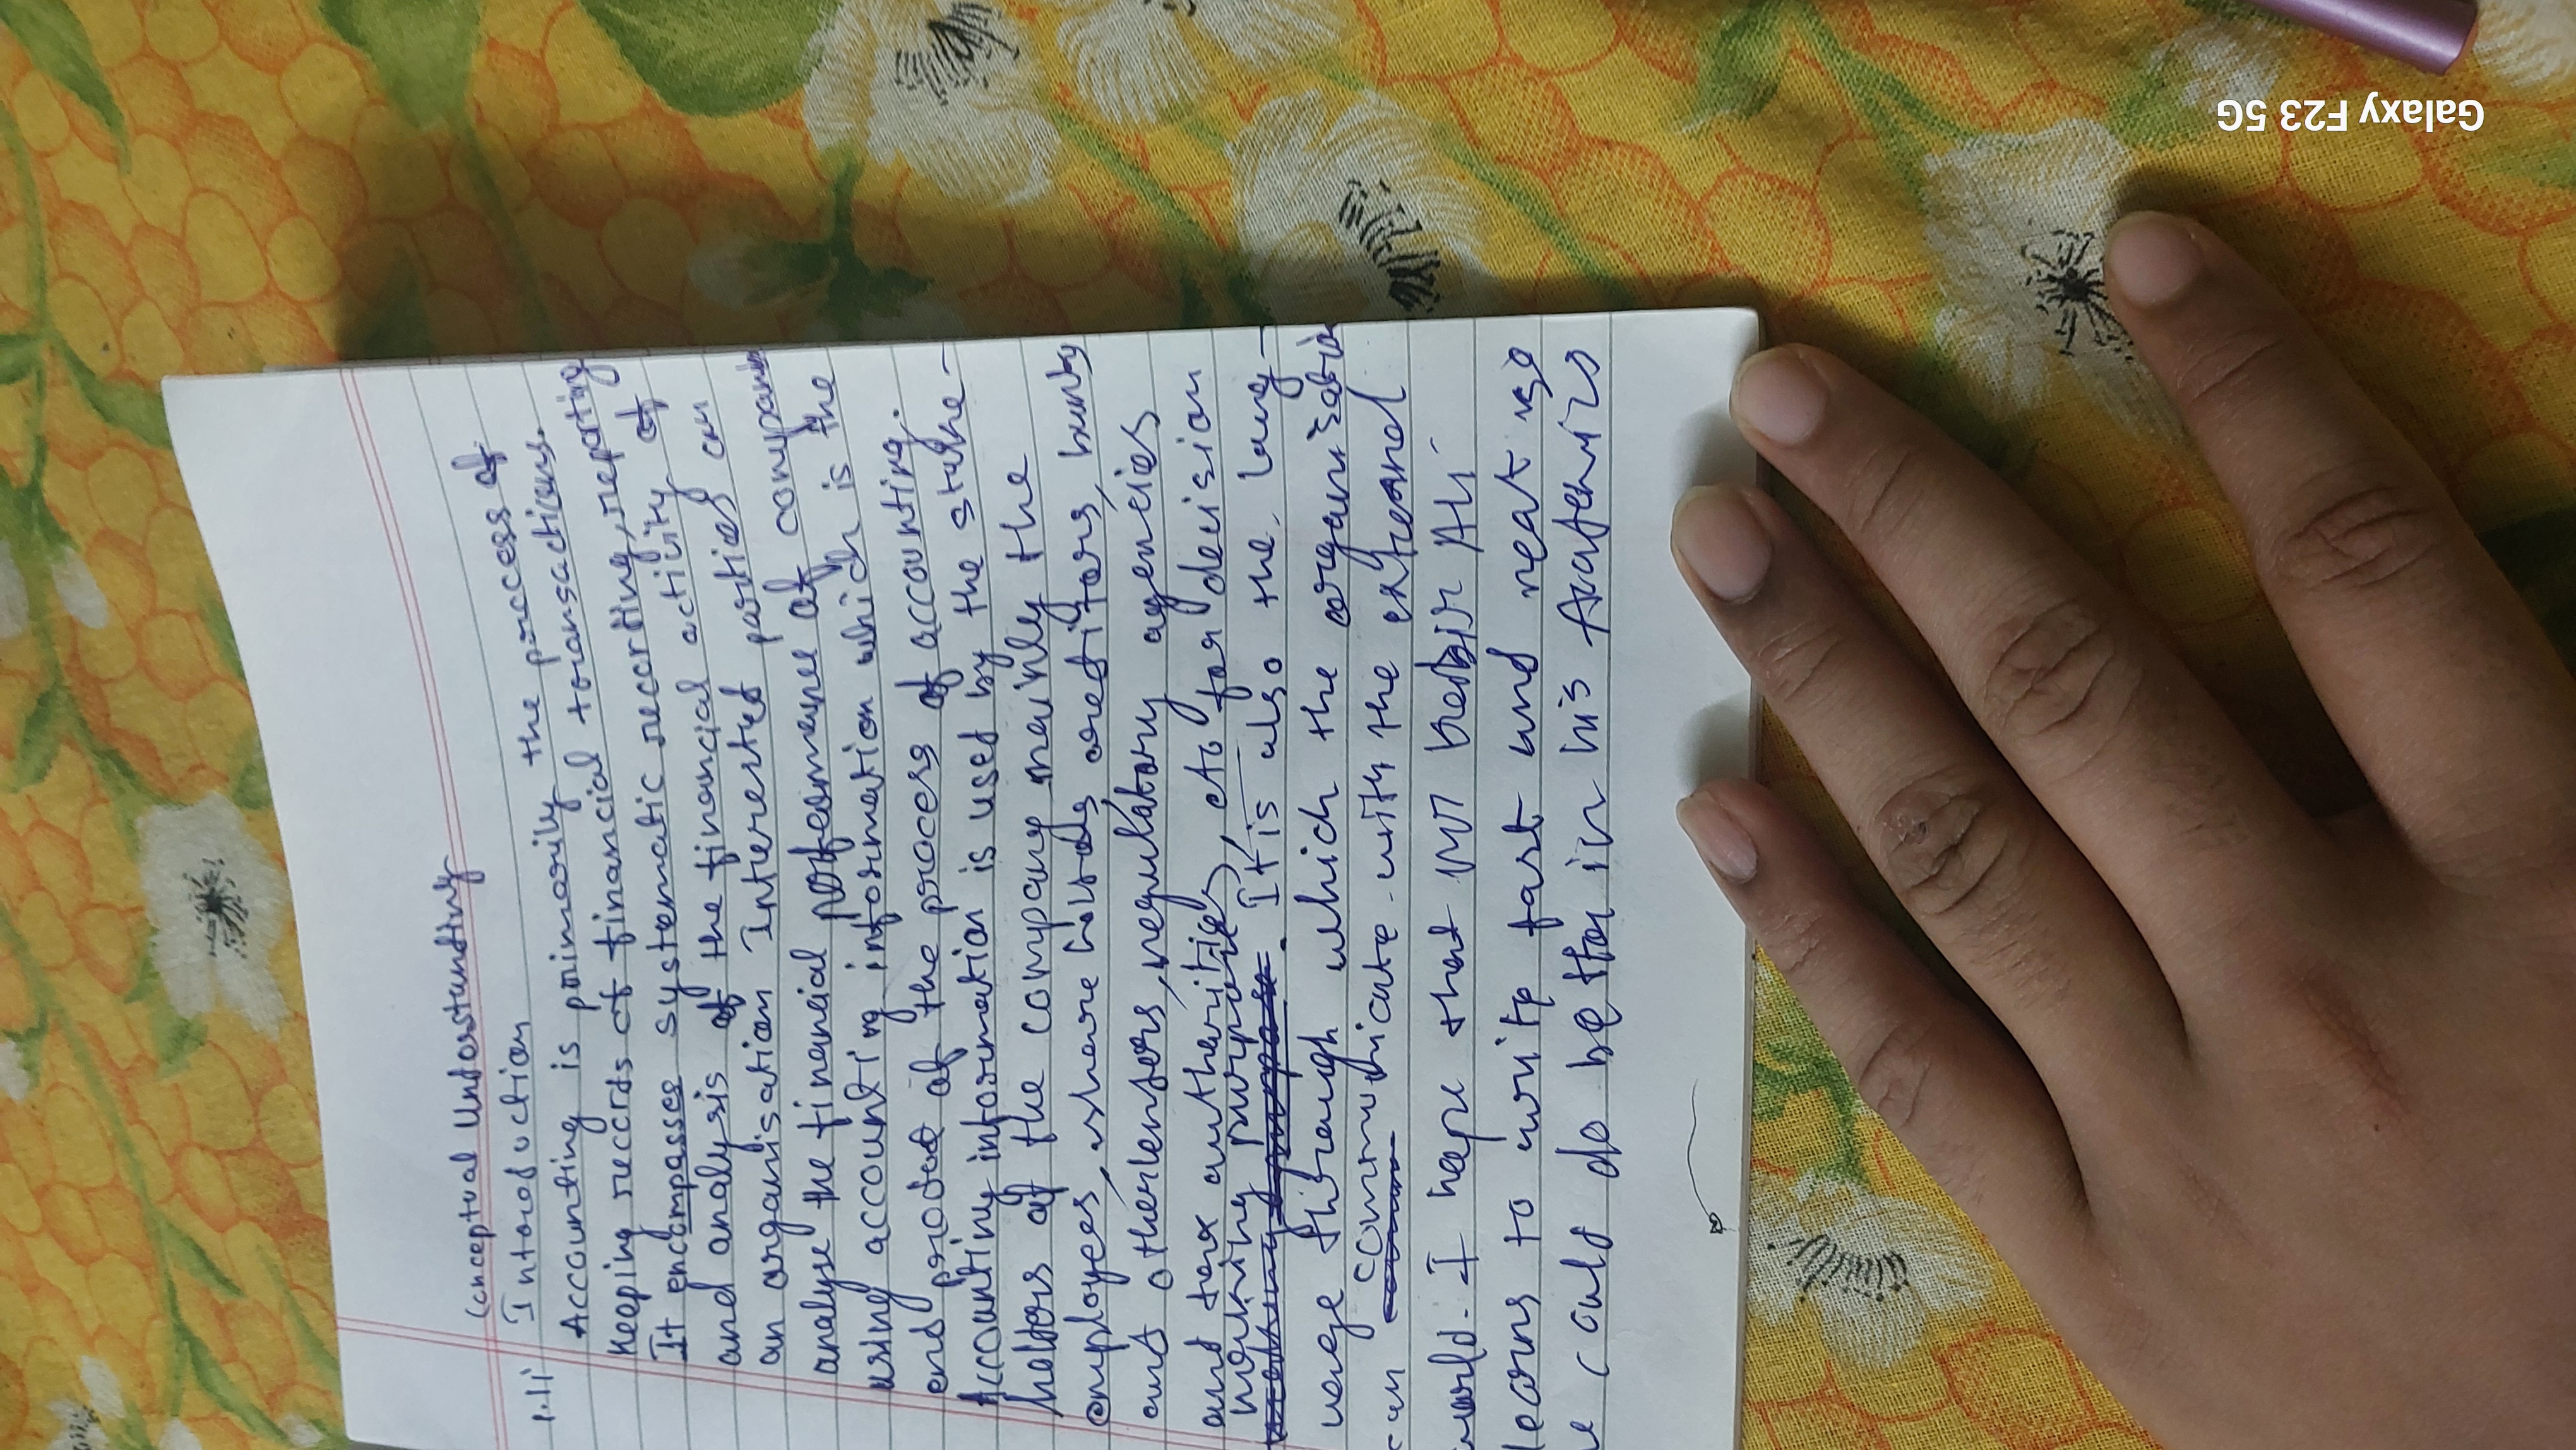 Conceptual Understanding
1.1i Introduction
Accounting is primarily the process of
Keeping records of financial transactions.
It encompasses systematic recording, reporting
and analysis of the financial activity of
an organisation Interested parties can
analyse the financial performance of company
using accounting information which is the
end product of the process of accounting.
Accounting information is used by the stake-
holders of the company mainly the
employees, share holders creditors,
and other lenders, regulatory agencies
and tax authorities, etc for decision
working purpose. It is also the lang-
uage through which the organisation
can communicate with the external
world. I hope that Ali
learns to write fast and neat so
he could do better in his Academics
Galaxy F23 5G